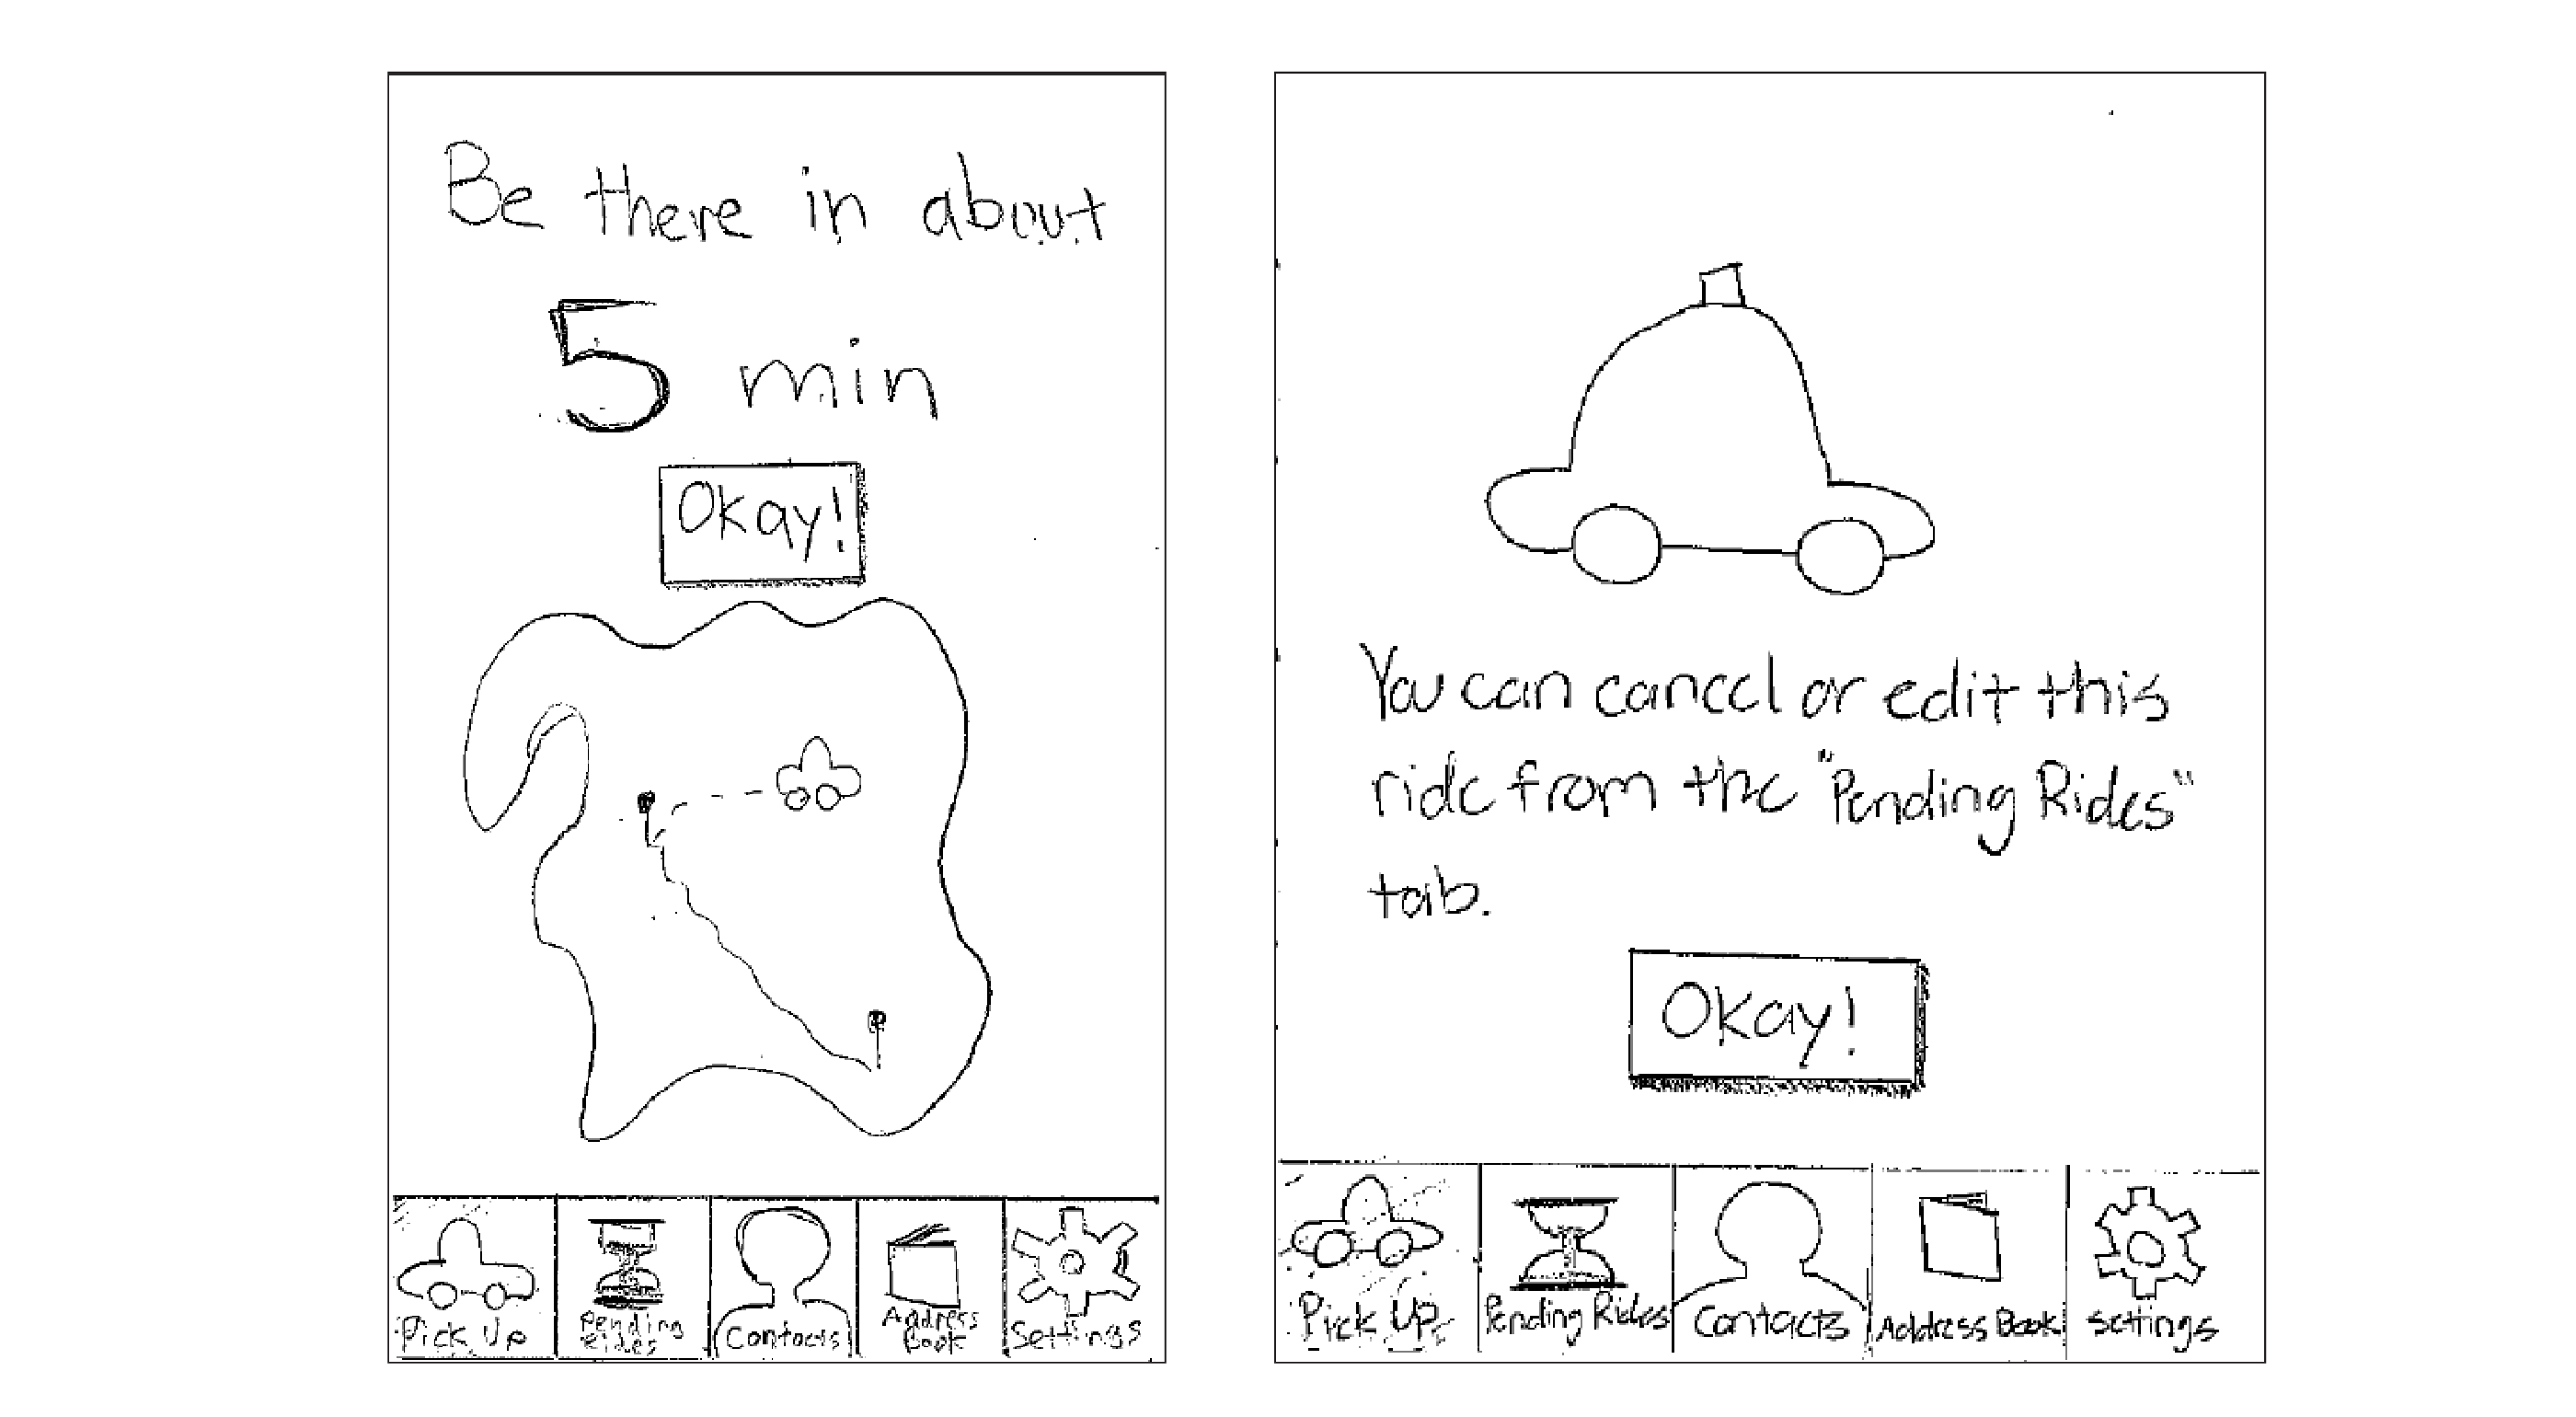 Be there in about
5 min
Okay!
Pick Up
Pending
Rides
Contacts
Address
Book
Settings
You can cancel or edit this
ride from the "Pending Rides"
tab.
Okay!
Pick Up
Pending Rides
Contacts
Address Book
Settings